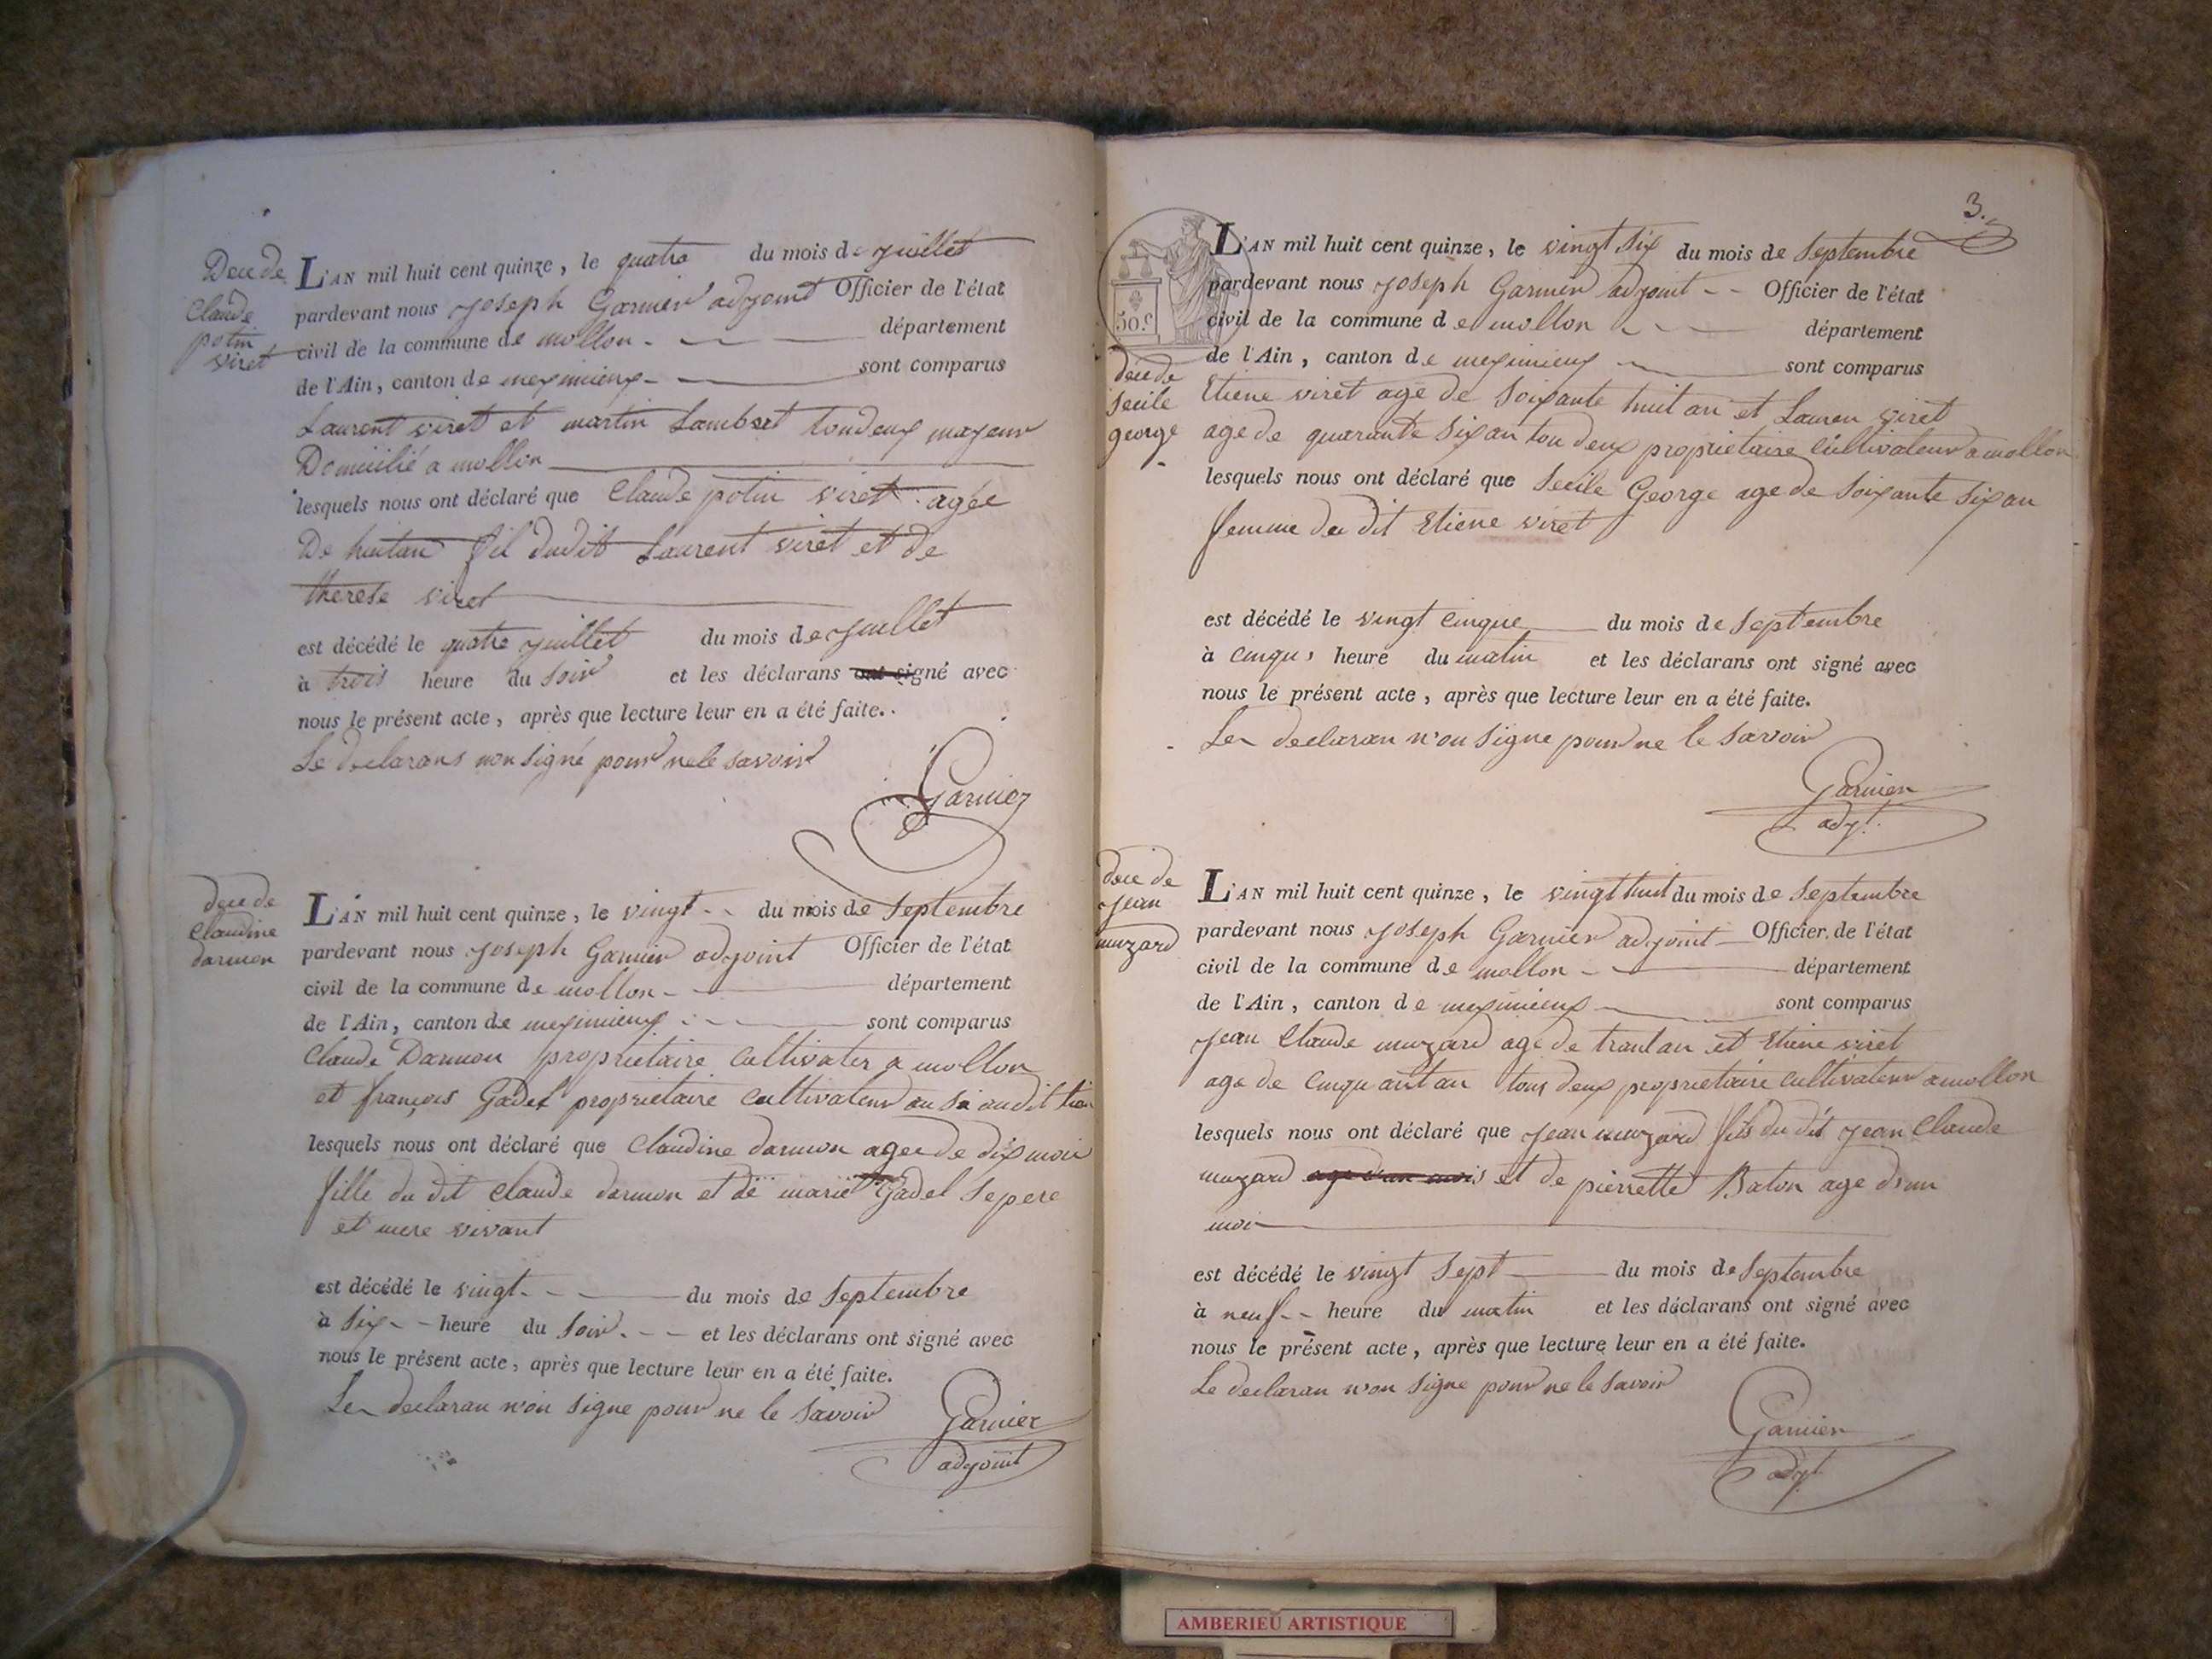 Dece de
Claude
potin
viret
L'AN mil huit cent quinze, le quatre du mois de juillet
pardevant nous joseph Garnier adjoint Officier de l'état
civil de la commune de mollon - département
de l'Ain, canton de meximieux - sont comparus
Laurent viret et martin Lambert toudeux majeur
Domicilié a mollon
lesquels nous ont déclaré que Claude potin viret agée
De huitan fil dudit Laurent viret et de
therese viret
est décédé le quatre juillet du mois de juillet
à trois heure du soir et les déclarans ont signé avec
nous le présent acte, après que lecture leur en a été faite.
Le declarans non signé pour ne le savoir
Garnier
dece de
Claudine
darmon
L'AN mil huit cent quinze, le vingt - - du mois de septembre
pardevant nous joseph Garnier adjoint Officier de l'état
civil de la commune de mollon - département
de l'Ain, canton de meximieux - sont comparus
Claude Darmon proprietaire cultivater a mollon
et françois Gadel proprietaire cultivateur au si audit lieu
lesquels nous ont déclaré que Claudine darmon agee de dix moi
fille du dit claude darmon et de marie Gadel se pere
et mere vivant
est décédé le vingt - - du mois de septembre
à six - - heure du soir - - et les déclarans ont signé avec
nous le présent acte, après que lecture leur en a été faite.
Les declaran n'on signe pour ne le savoir
Garnier
adjoint
3.
50 c
L'AN mil huit cent quinze, le vingt six du mois de septembre
pardevant nous joseph Garnier adjoint - - Officier de l'état
civil de la commune de mollon - - département
de l'Ain, canton de meximieux - sont comparus
dece de
secile
george
Etiene viret age de soixante huit an et Lauren viret
age de quarante six an tou deux proprietaire cultivateur a mollon
lesquels nous ont déclaré que secile George age de soixante six an
femme du dit Etiene viret
est décédé le vingt cinque du mois de septembre
à cinqus heure du matin et les déclarans ont signé avec
nous le présent acte, après que lecture leur en a été faite.
Les declaran n'on signe pour ne le savoir
Garnier
adjt.
dece de
jean
muzard
L'AN mil huit cent quinze, le vingt huit du mois de septembre
pardevant nous joseph Garnier adjoint - Officier de l'état
civil de la commune de mollon - département
de l'Ain, canton de meximieux - sont comparus
jean Claude muzard age de trantan et Etiene viret
age de cinquantan tous deux proprietaire cultivateur a mollon
lesquels nous ont déclaré que jean muzard fils du dit jean Claude
muzard age d'un mois et de pierrette Baton age d'un
moi
est décédé le vingt sept du mois de septembre
à neuf - - heure du matin et les déclarans ont signé avec
nous le présent acte, après que lecture leur en a été faite.
Le declaran n'on signe pour ne le savoir
Garnier
adjt
AMBERIEU ARTISTIQUE